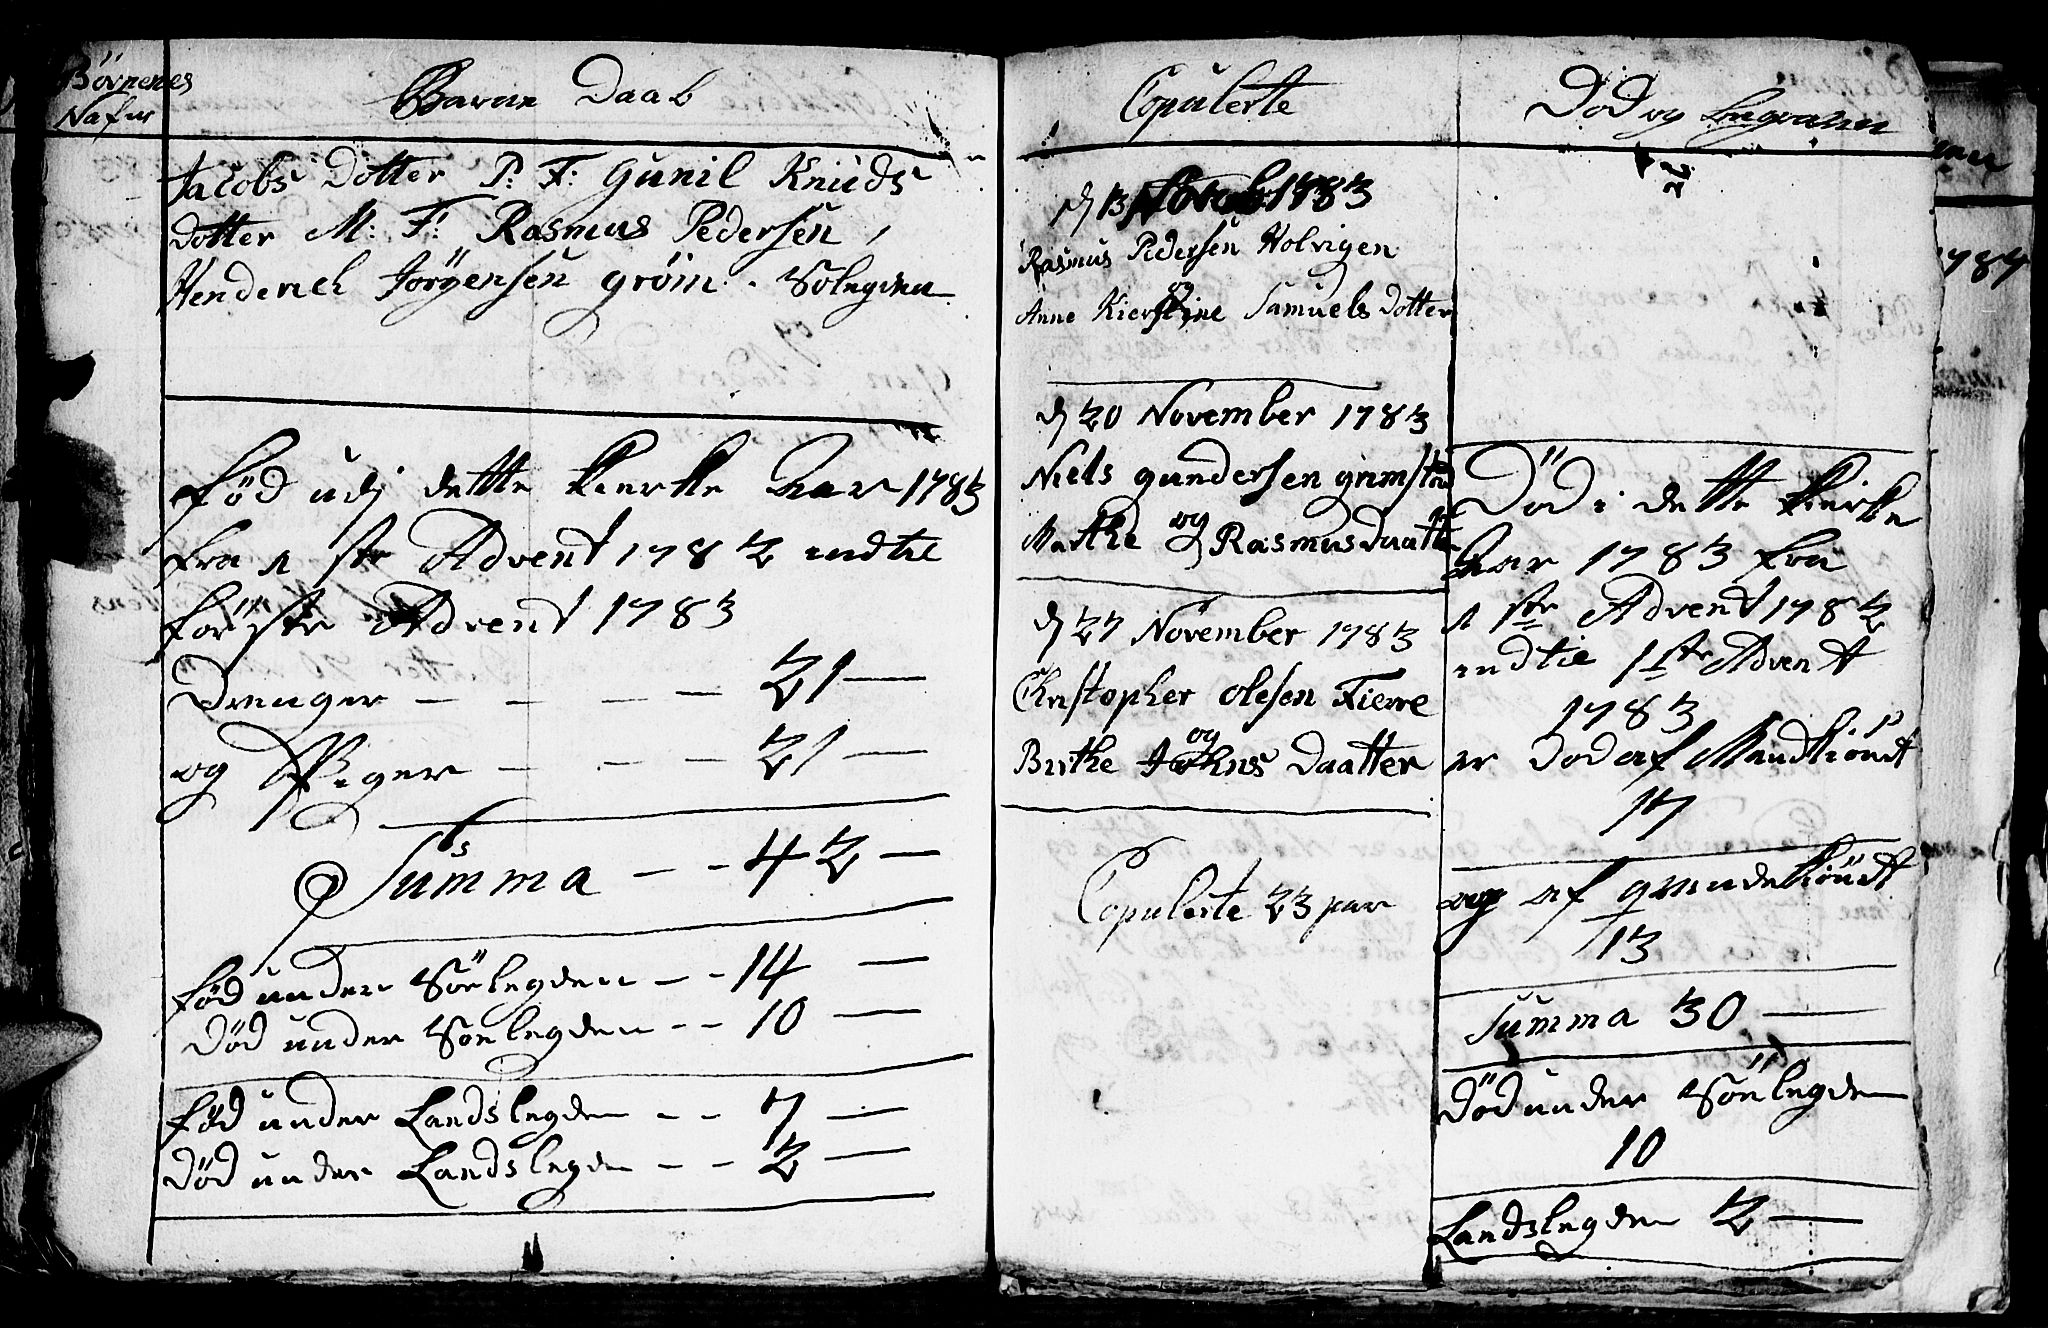 Börnenes
Nafn
Barne Daab
Jacobs Dotter P: F: Gunil Knuds
Dotter M: F: Rasmus Pedersen,
Henderich Jörgensen gröm. Sölegden
Föd udj dette Kierke Aar 1783
fra 1 ste Advent 1782 indtil
förste Advent 1783
Drenger — — — — 21 —
og Piger — — — — 21 —
Summa — — 42 —
föd under Söelegden — — 14 —
Död under Söelegden — — 10 —
föd under Landslegden — — 7 —
Död under Landslegden — — 2 —
Copulerte
d 13 Novemb 1783
Rasmus Pedersen Holvigen
og
Anne Kierstine Samuels Dotter
d 20 November 1783
Niels gundersen grimstad
og
Marthe Rasmusdaatter
d 27 November 1783
Christopher Olesen Fierre
og
Birthe Johns Daatter
Copulerte 23 par
Död og begraven
Död i dette Kierke
Aar 1783 fra
1 ste Advent 1782
indtil 1 ste Advent
1783
er Död af Mandkiönt
17
og af qvindekiöndt
13
Summa 30 —
Död under Söelegden
10
Landslegden 2 —